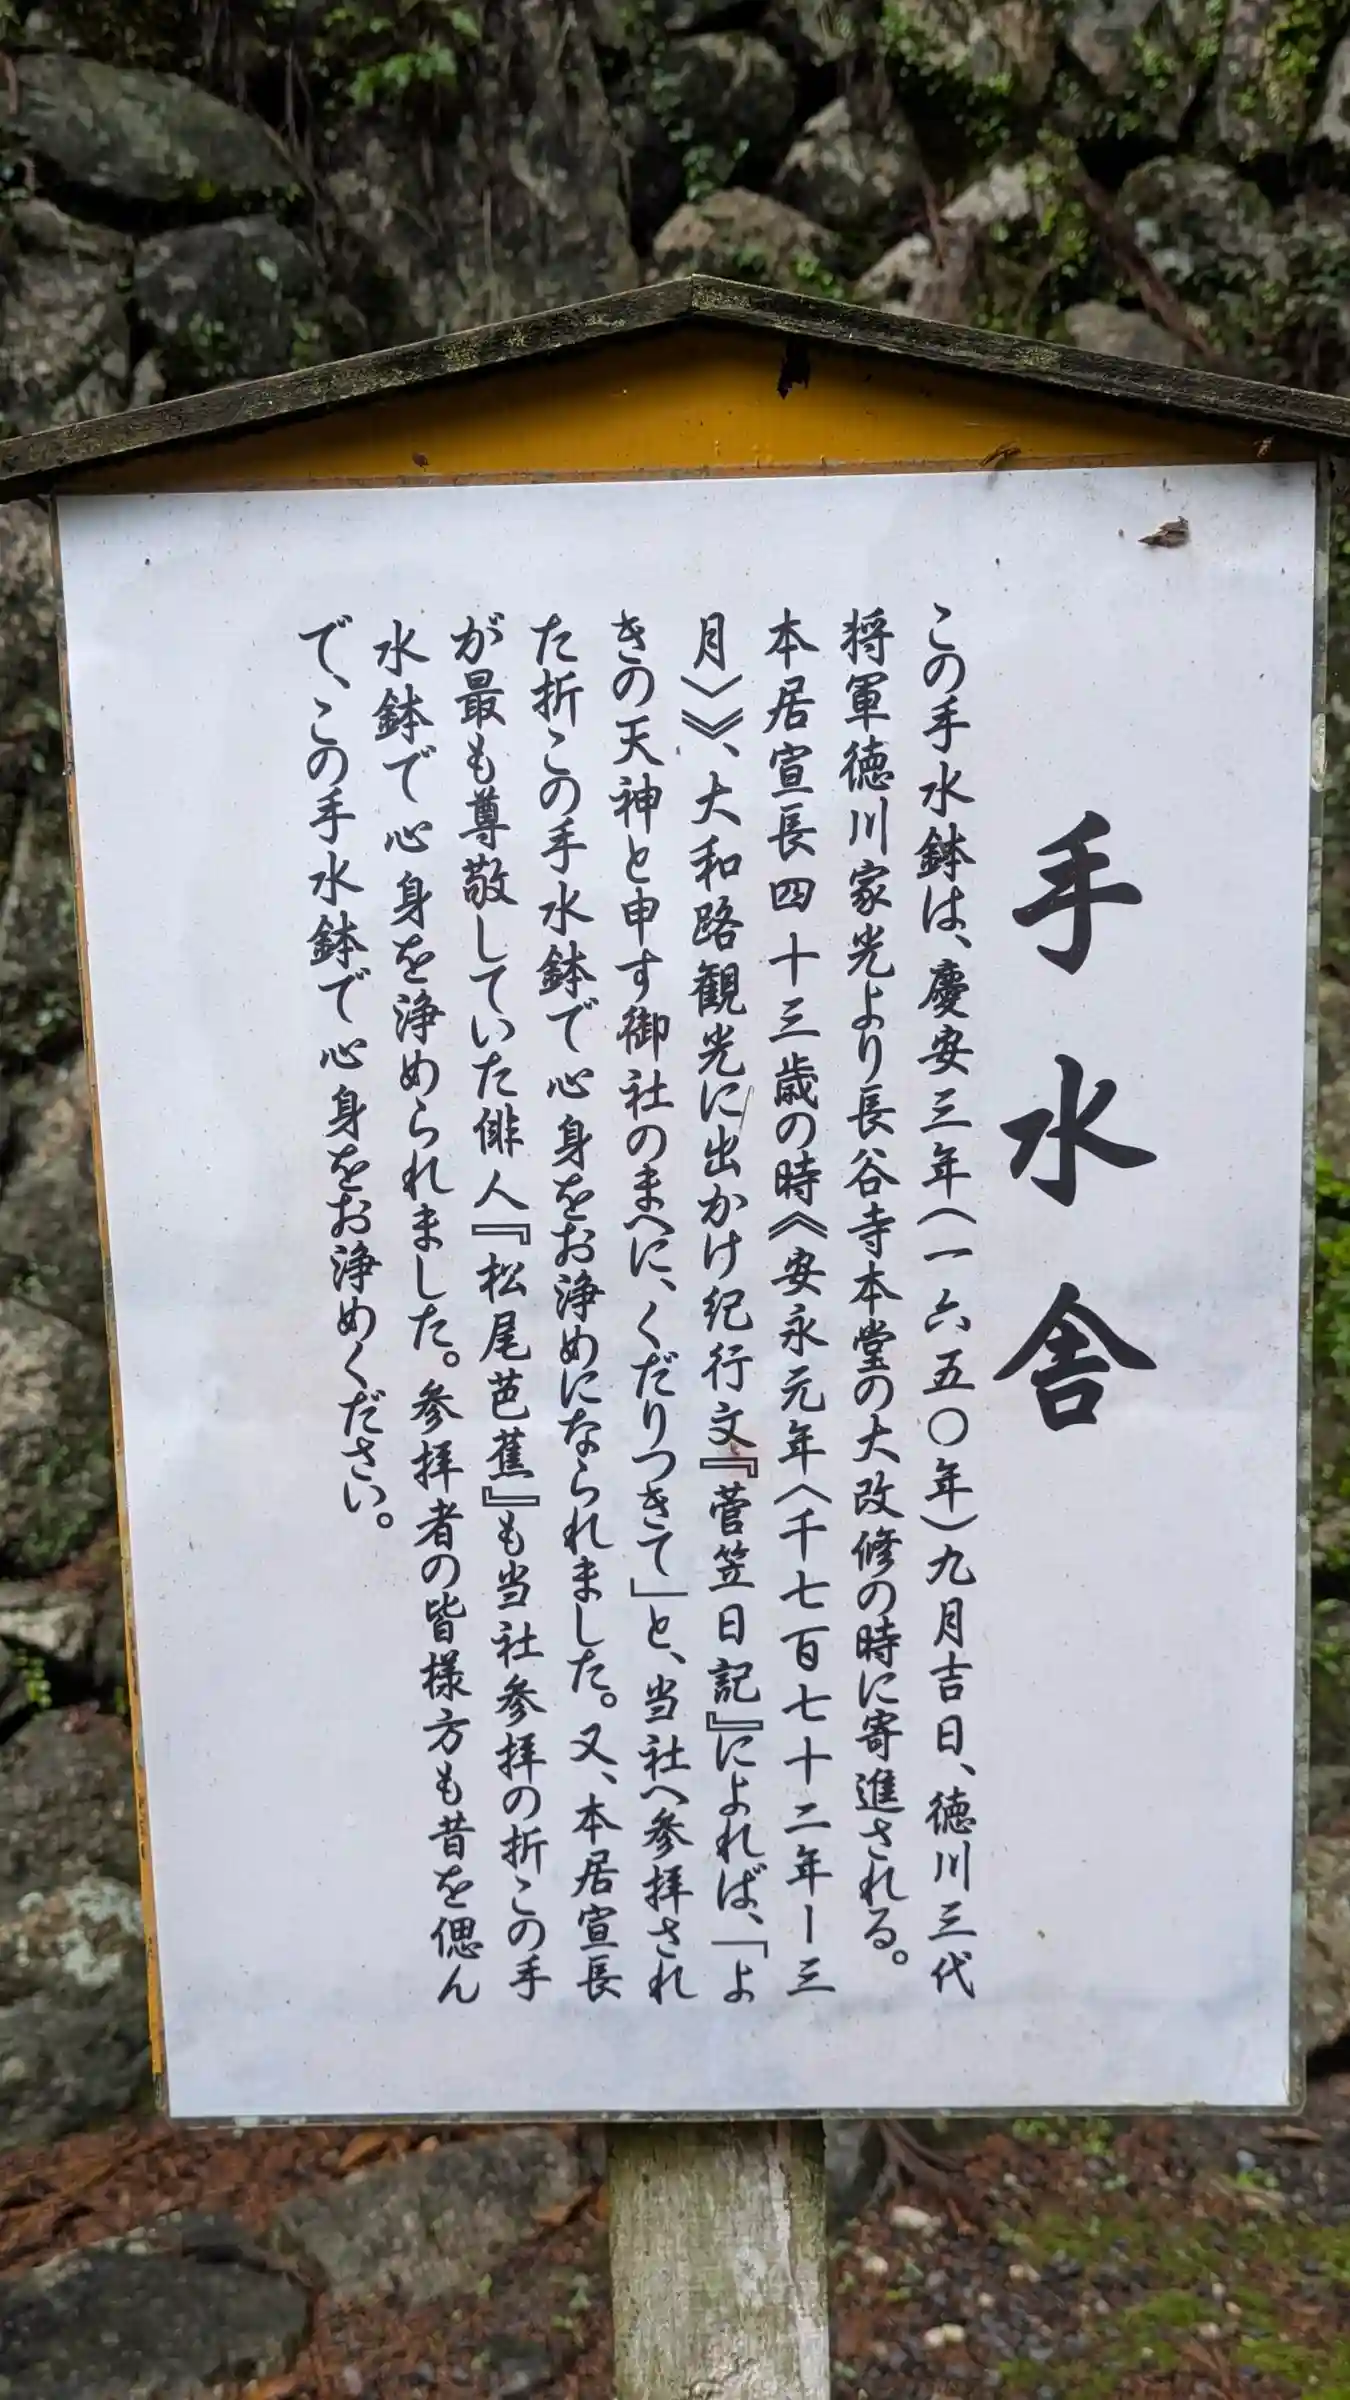 手水舎
この手水鉢は、慶安三年（一六五〇年）九月吉日、徳川三代
将軍徳川家光より長谷寺本堂の大改修の時に寄進される。
本居宣長四十三歳の時《安永元年〈千七百七十二年ー三
月〉》、大和路観光に出かけ紀行文『菅笠日記』によれば、「よ
きの天神と申す御社のまへに、くだりつきて」と、当社へ参拝され
た折この手水鉢で心身をお浄めになられました。又、本居宣長
が最も尊敬していた俳人『松尾芭蕉』も当社参拝の折この手
水鉢で心身を浄められました。参拝者の皆様方も昔を偲ん
で、この手水鉢で心身をお浄めください。